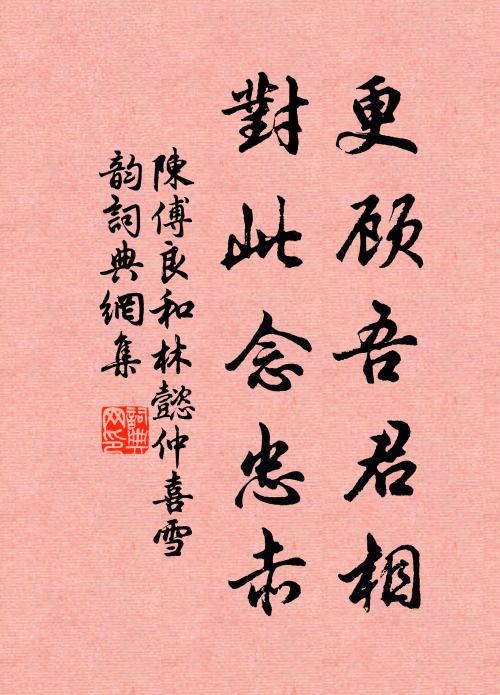 更顾吾君相
對此念忠赤
陳傅良和林懿仲喜雪
韵詞典網集
詞典网印